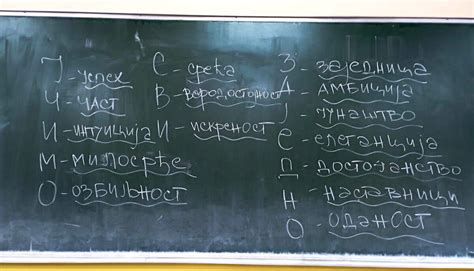 У - успех
Ч - част
И - интуиција
М - милосрђе
О - озбиљност
С - срећа
В - веродостојност
И - искреност
З - заједница
А - амбиција
Ј - јунаштво
Е - елеганција
Д - достојанство
Н - наставници
О - оданост